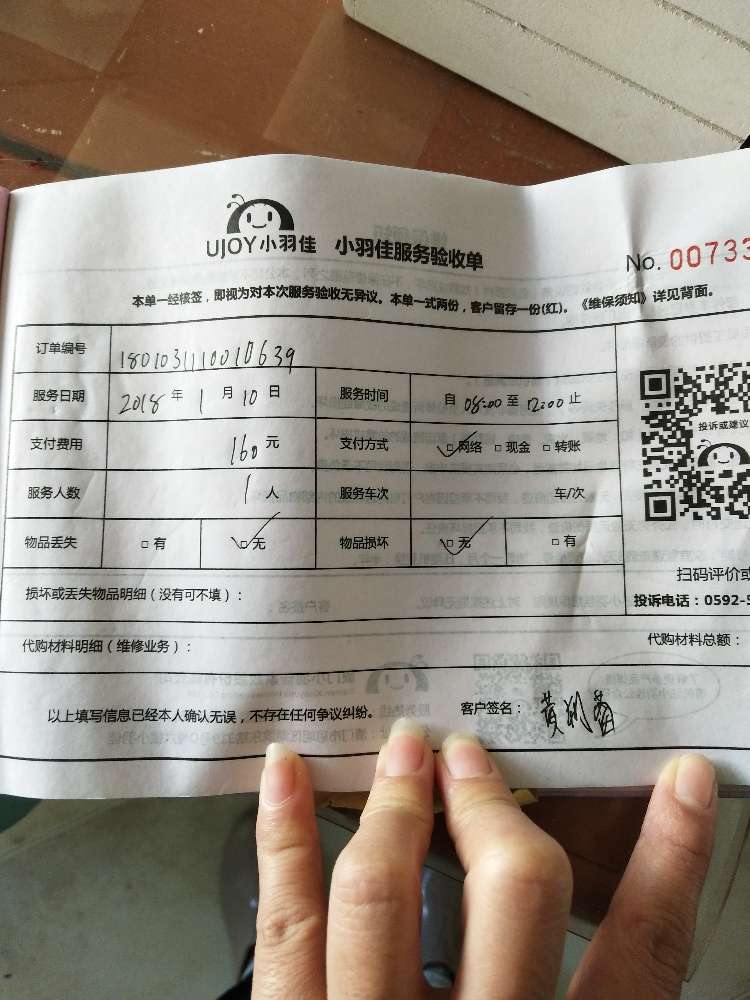 UJOY小羽佳 小羽佳服务验收单
No. 00733
本单一经核签，即视为对本次服务验收无异议。本单一式两份，客户留存一份(红)。《维保须知》详见背面。
订单编号 18010311100010639
服务日期 2018 年 1 月 10 日 服务时间 自 08:00 至 12:00 止
支付费用 160 元 支付方式 □网络 □现金 □转账
投诉或建议
服务人数 1 人 服务车次 车/次
物品丢失 □有 □无 物品损坏 □无 □有
扫码评价或
损坏或丢失物品明细（没有可不填）：
投诉电话：0592-5
代购材料明细（维修业务）： 代购材料总额：
以上填写信息已经本人确认无误，不存在任何争议纠纷。 客户签名：黄